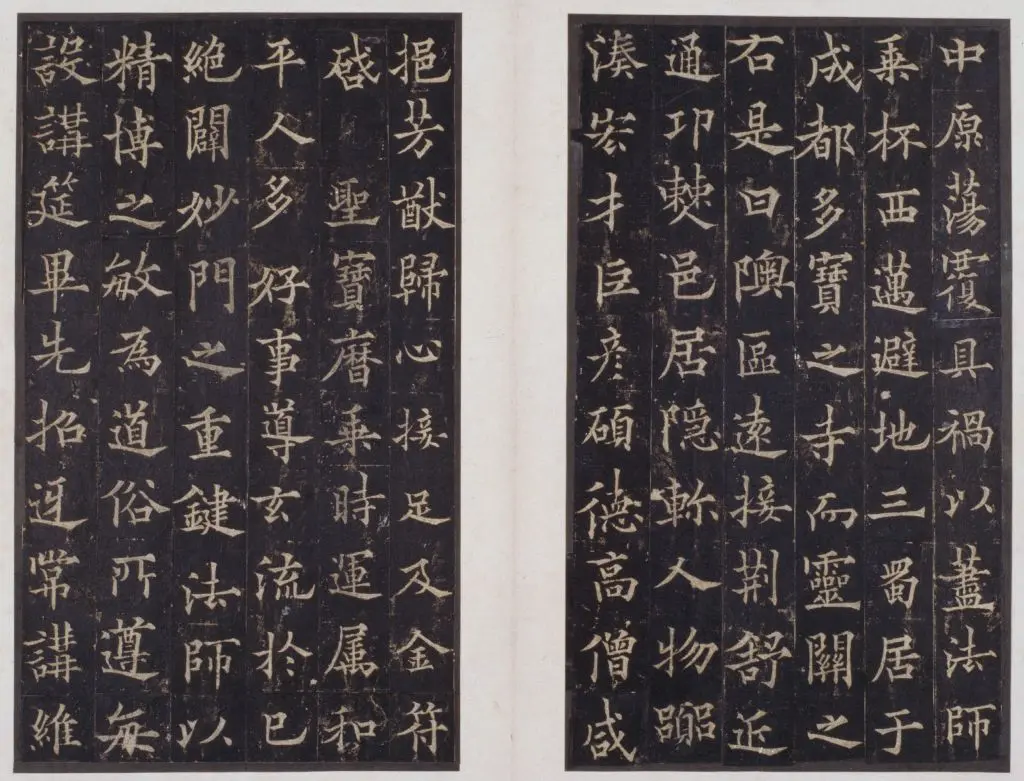 中原蕩覆具禍以蓋法師
乗杯西邁避地三蜀居于
成都多寶之寺而靈關之
右是曰隩區遠接荆舒近
通邛僰邑居隐軫人物嚻
湊宏才巨彦碩德高僧咸
挹芳猷歸心接足及金符
啓 聖寶暦乗時運属和
平人多好事導玄流於已
絶闢妙門之重鍵法師以
精博之敏為道俗所遵每
設講筵畢先招迓常講維